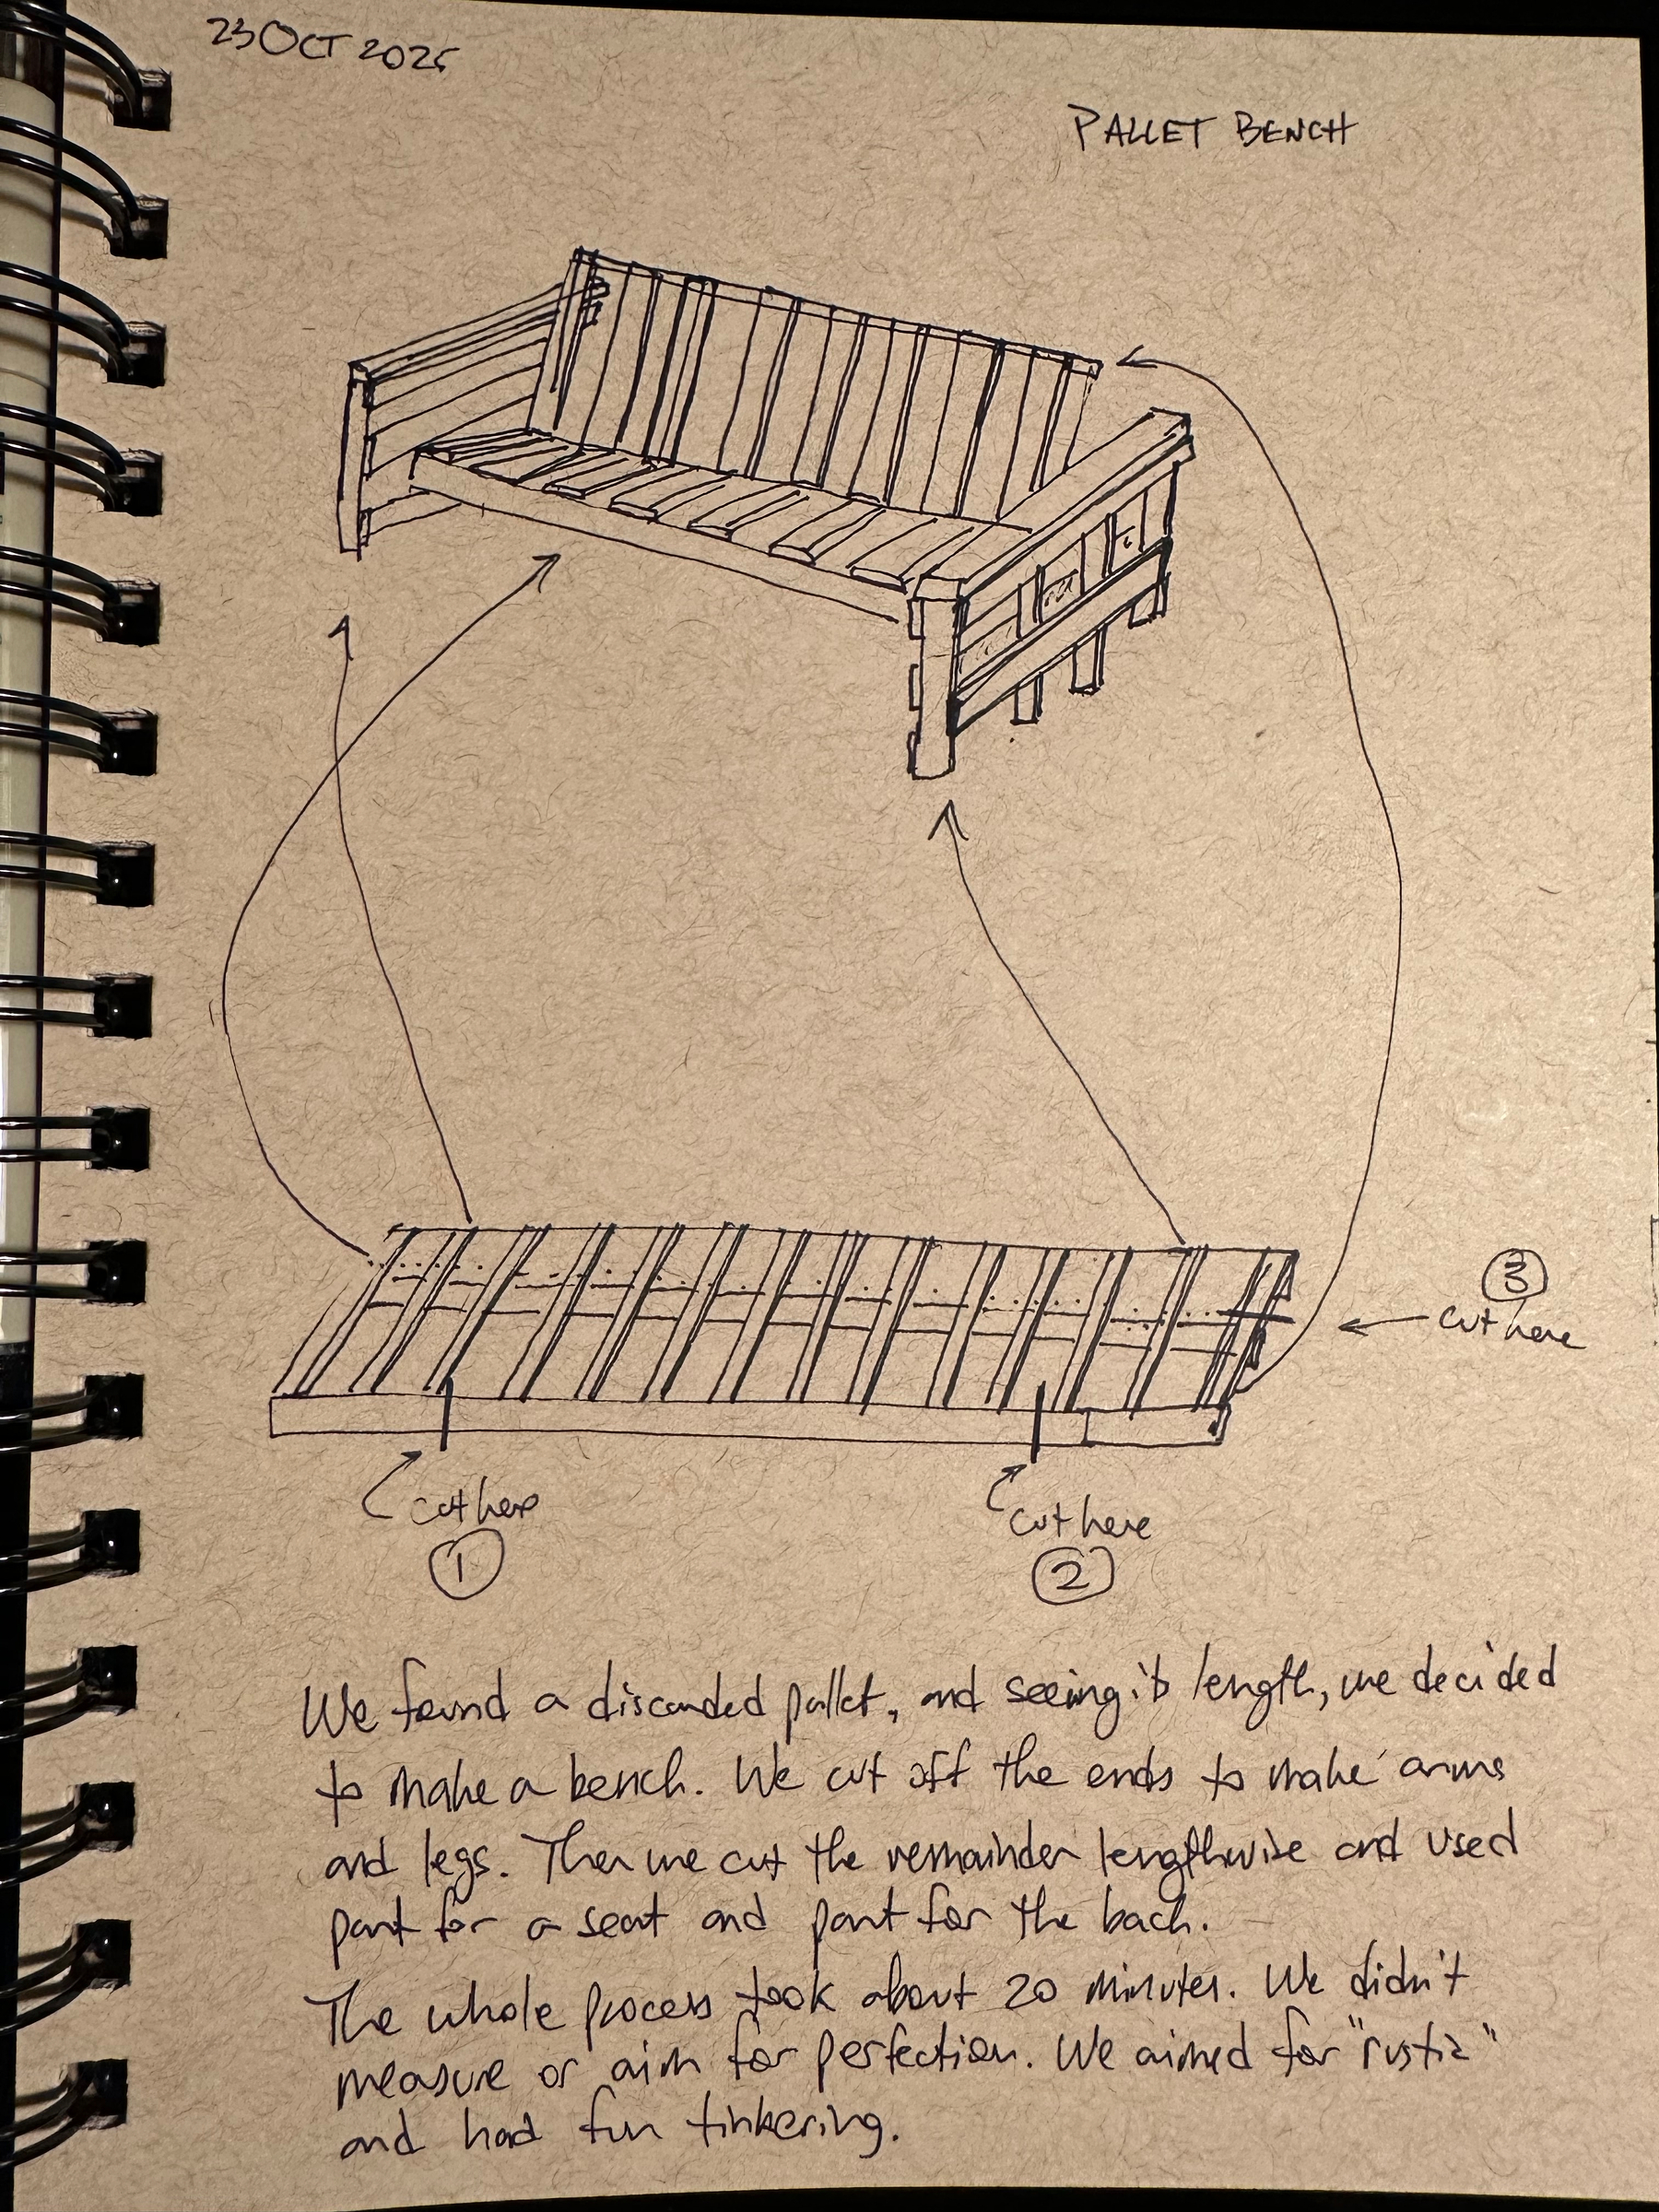 23 OCT 2025
PALLET BENCH
3
cut here
cut here
1
cut here
2
We found a discarded pallet, and seeing its length, we decided
to make a bench. We cut off the ends to make arms
and legs. Then we cut the remainder lengthwise and used
part for a seat and part for the back.
The whole process took about 20 minutes. We didn't
measure or aim for perfection. We aimed for "rustic"
and had fun tinkering.